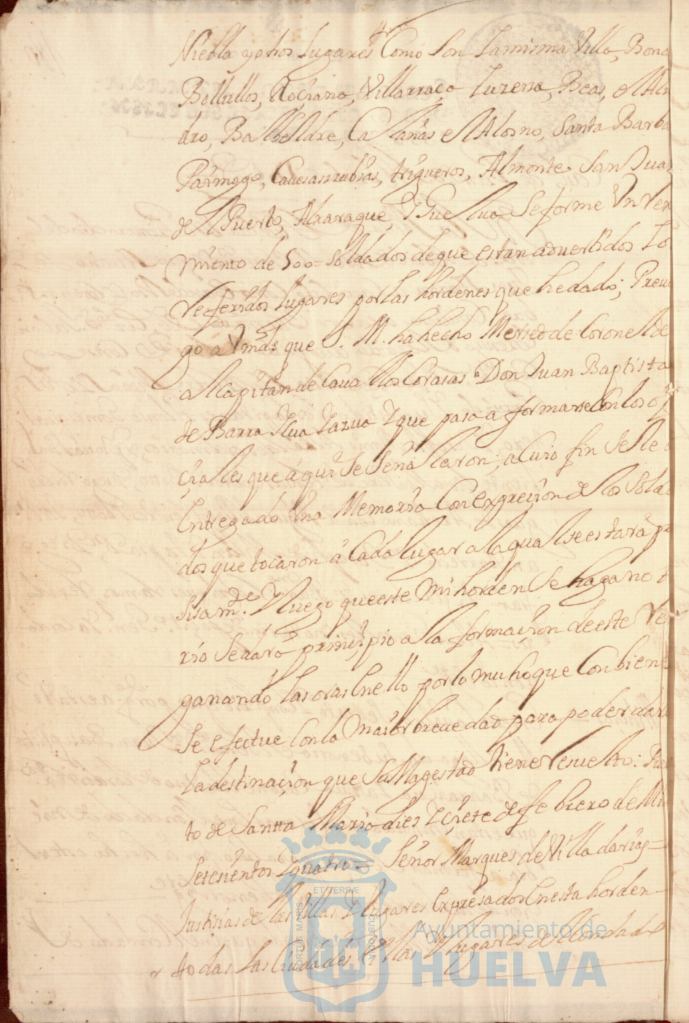 Niebla y otros lugares Como son La misma Villa, Bona
Bollullos, Rociana, Villarraza Luzena, Beas, el Alm
dro, Balbelde, Calañas el Alosno, Santa Barba
Paimogo, Cauesasrubias, trigueros, Almonte San Jua
del Puerto, Aljaraque y Guelua Se forme Vn
miento de 500 Soldados de que estan aduertidos Lo
referidos lugares por las hordenes que he dado; Preu
go a Vmds que S. M. ha hecho Merced de Coronel
al Capitan de Cauallos Corasas Don Juan Baptista
de y que pasa a formarse Con los ofi
çiales que aqui se Señalaron; a Cuio fin Se le a
Entregado Vna Memoria Con expreçion de los Solda
dos que tocaron a Cada lugar a la qual se estara
y luego que este mi horden Se haga no
rio Se dara prinçipio a la formaçion de este Re
ganando las oras en ello por lo mucho que Conbiene
Se efectue Con la Maior breuedad para poder darl
La destinaçion que Su Magestad tiene resuelto: Pu
to de Santta Maria dies y siete de febrero de Mil
Setecientos y quatro = Señor Marques de Villadarias =
Justicias de las Villas y lugares Expresados en esta horden
todas las Ciudades Villas y lugares del Condado
ET TERRÆ
Ayuntamiento de
HUELVA